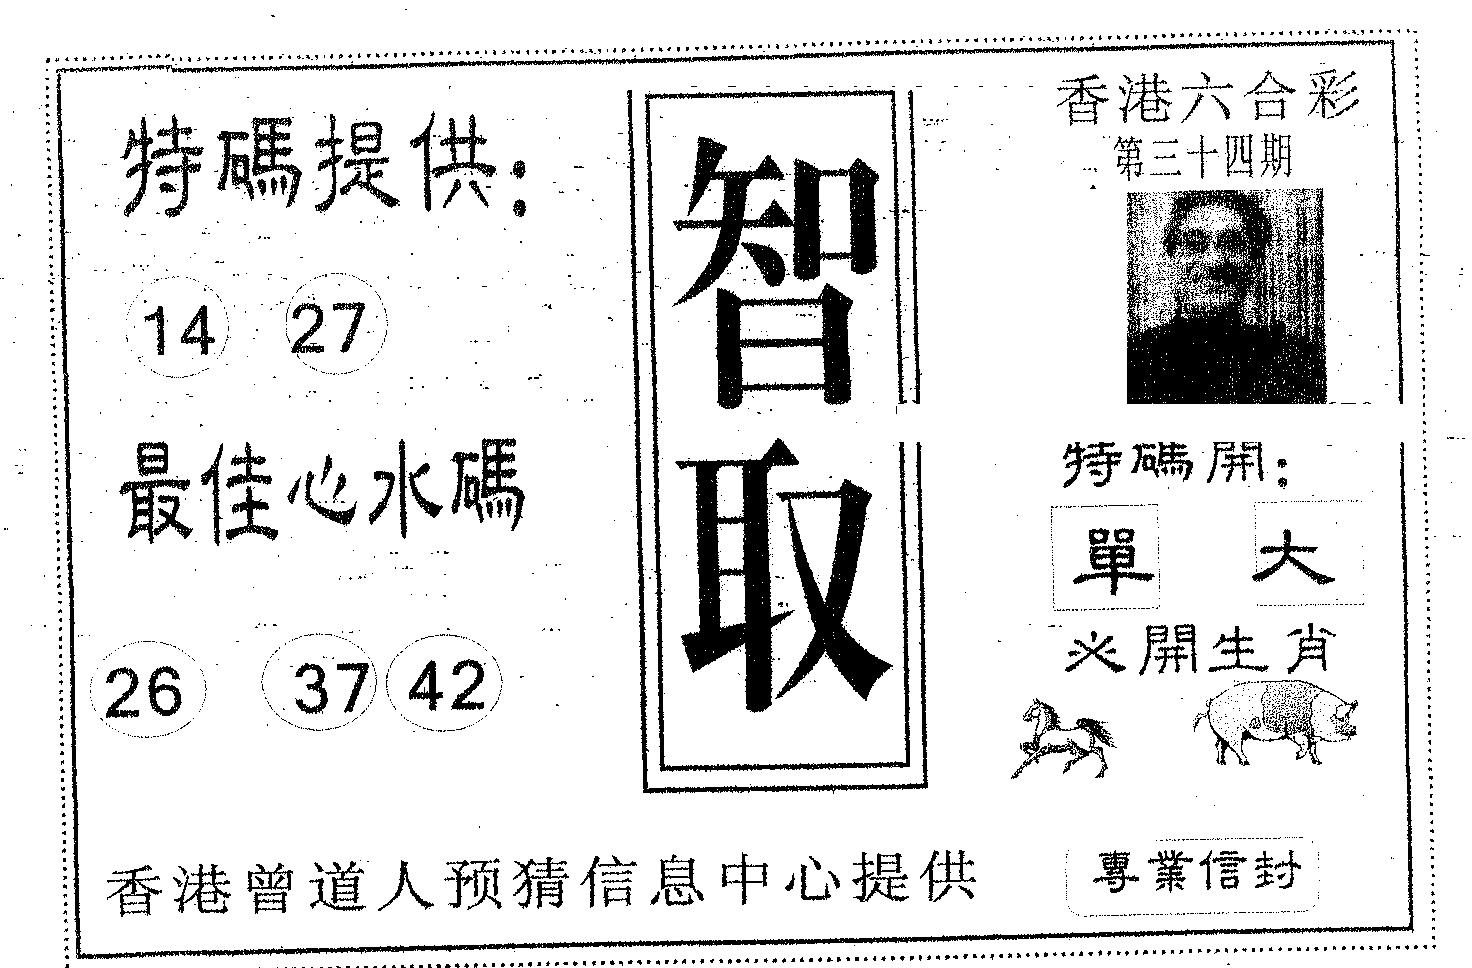 香港六合彩
第三十四期
特碼提供：
14 27
最佳心水碼
26 37 42
智取
特碼開：
單 大
必開生肖
香港曾道人预猜信息中心提供
專業信封